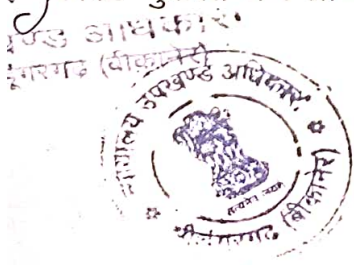 खण्ड अधिकारी
डूंगरगढ (बीकानेर)
न्यायालय उपखण्ड अधिकारी
सत्यमेव जयते
श्रीडूंगरगढ (बीकानेर)